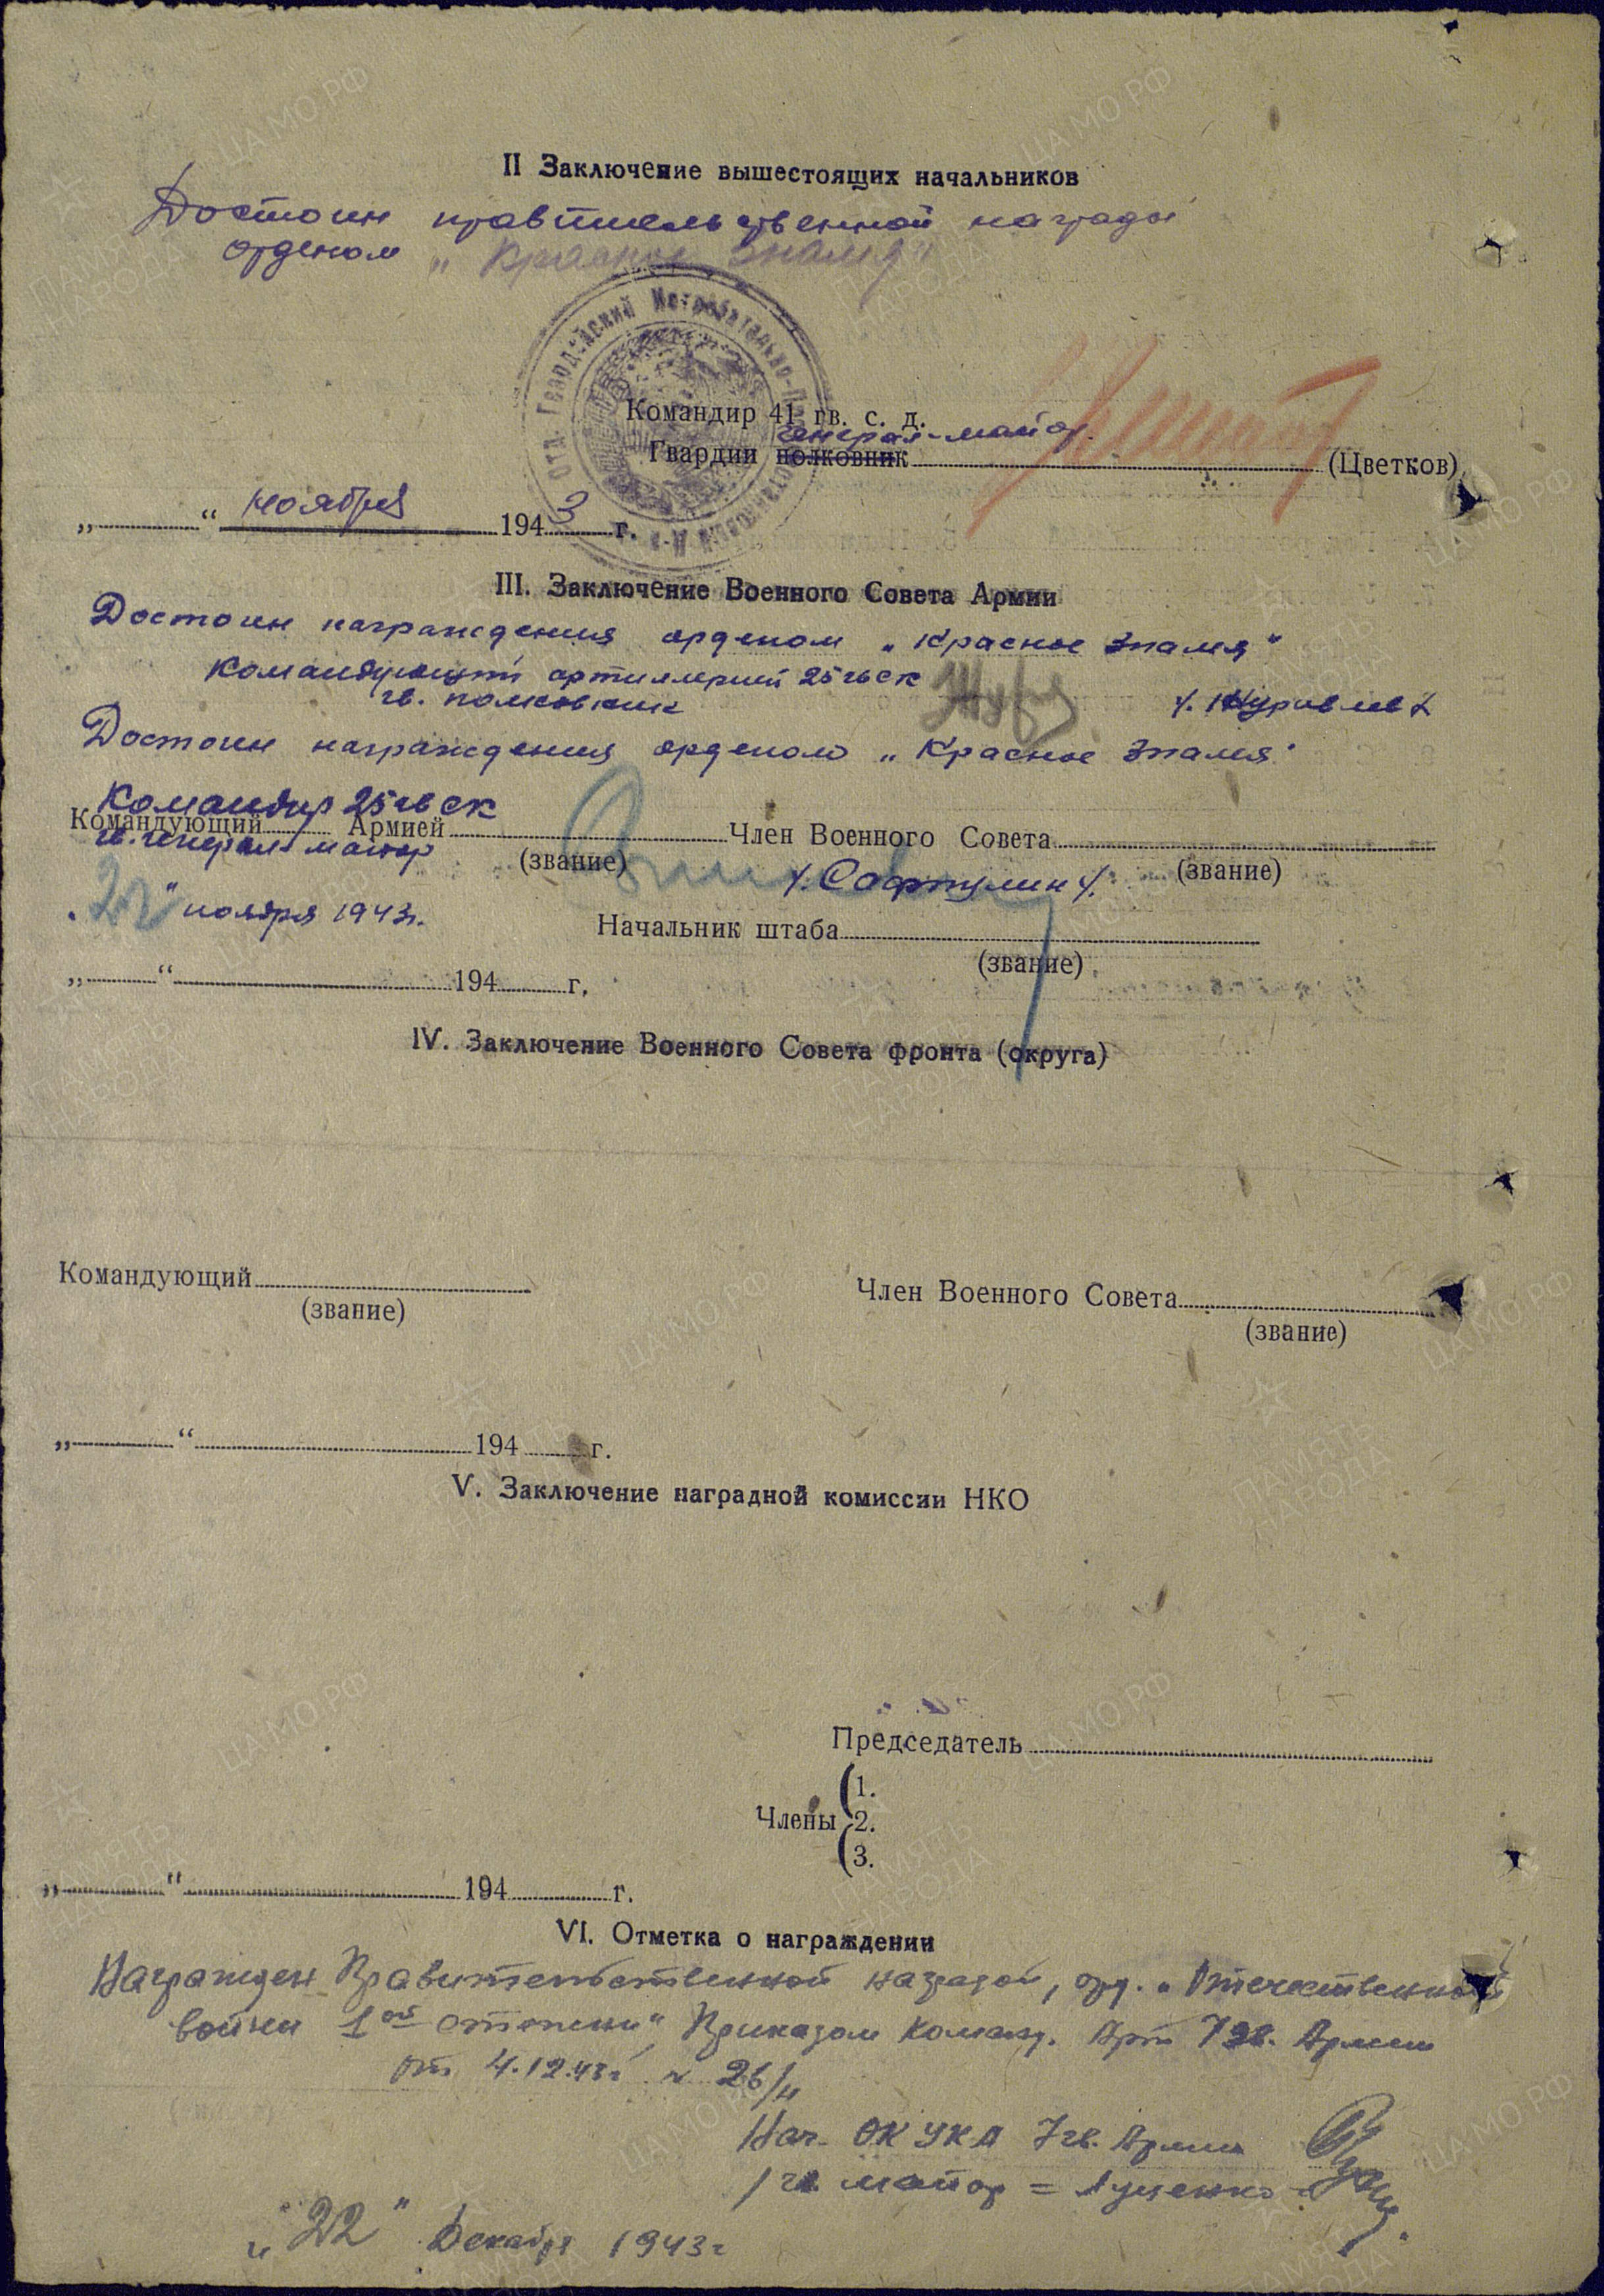 II Заключение вышестоящих начальников
Достоин правительственной награды
орденом „Красное Знамя"
Отд. Гвардейский Истребительно-
Командир 41 гв. с. д.
генерал-майор
Гвардии полковник (Цветков)
„ “ ноября 1943 г.
III. Заключение Военного Совета Армии
Достоин награждения орденом „Красное Знамя"
Командующий артиллерией 25 гв ск
гв. полковник /. Журавлев /
Достоин награждения орденом „Красное Знамя"
Командир 25 гв ск
Командующий Армией Член Военного Совета
гв. генерал-майор (звание) /. Сафиулин /. (звание)
„22" ноября 1943 г.
Начальник штаба
(звание)
„ “ 194 г.
IV. Заключение Военного Совета фронта (округа)
Командующий Член Военного Совета
(звание) (звание)
„ “ 194 г.
V. Заключение наградной комиссии НКО
Председатель
1.
Члены 2.
3.
„ “ 194 г.
VI. Отметка о награждении
Награжден Правительственной наградой, орд. „Отечественной
войны 1ой степени", Приказом Команд. Арт 7 гв. Армии
от 4.12.43 г № 26/н
Нач. ОК УКА 7 гв. Армии
гв майор = Луценко =
„22" Декабря 1943 г